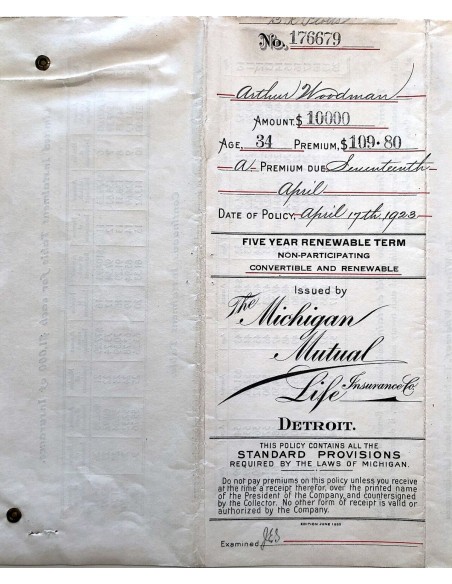 No. 176679
Arthur Woodman
AMOUNT, $ 10000
AGE, 34 PREMIUM, $109.80
A- PREMIUM DUE, Seventeenth
April
DATE OF POLICY, April 17th, 1923
FIVE YEAR RENEWABLE TERM
NON-PARTICIPATING
CONVERTIBLE AND RENEWABLE
Issued by
The Michigan
Mutual
Life Insurance Co.
DETROIT.
THIS POLICY CONTAINS ALL THE
STANDARD PROVISIONS
REQUIRED BY THE LAWS OF MICHIGAN.
Do not pay premiums on this policy unless you receive
at the time a receipt therefor, over the printed name
of the President of the Company, and countersigned
by the Collector. No other form of receipt is valid or
authorized by the Company.
EDITION JUNE
Examined